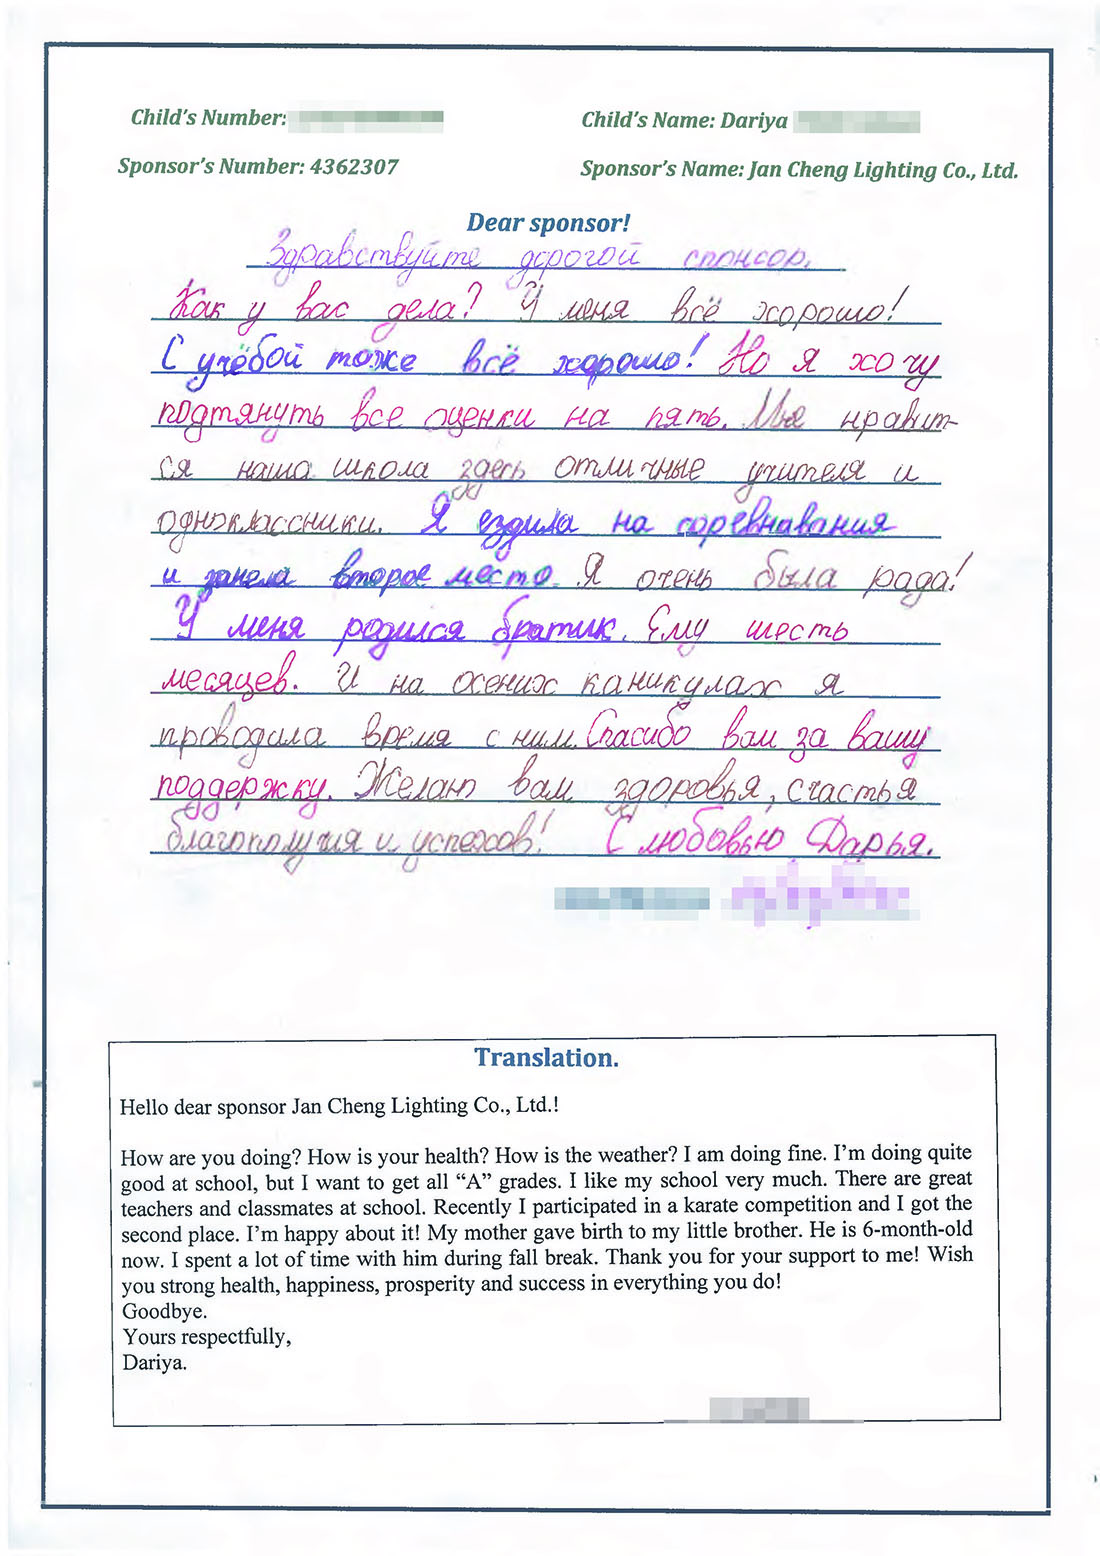 Child's Number:
Child's Name: Dariya
Sponsor's Number: 4362307
Sponsor's Name: Jan Cheng Lighting Co., Ltd.
Dear sponsor!
Здравствуйте дорогой спонсор.
Как у вас дела? У меня всё хорошо!
С учёбой тоже всё хорошо! Но я хочу
подтянуть все оценки на пять. Мне нравит-
ся наша школа здесь отличные учителя и
одноклассники. Я ездила на соревнавания
и занела второе место. Я очень была рада!
У меня родился братик. Ему шесть
месяцев. И на осених каникулах я
проводила время с ним. Спасибо вам за вашу
поддержку. Желаю вам здоровья, счастья
благополучия и успехов! С любовью Дарья.
Translation.
Hello dear sponsor Jan Cheng Lighting Co., Ltd.!
How are you doing? How is your health? How is the weather? I am doing fine. I'm doing quite
good at school, but I want to get all “A” grades. I like my school very much. There are great
teachers and classmates at school. Recently I participated in a karate competition and I got the
second place. I'm happy about it! My mother gave birth to my little brother. He is 6-month-old
now. I spent a lot of time with him during fall break. Thank you for your support to me! Wish
you strong health, happiness, prosperity and success in everything you do!
Goodbye.
Yours respectfully,
Dariya.